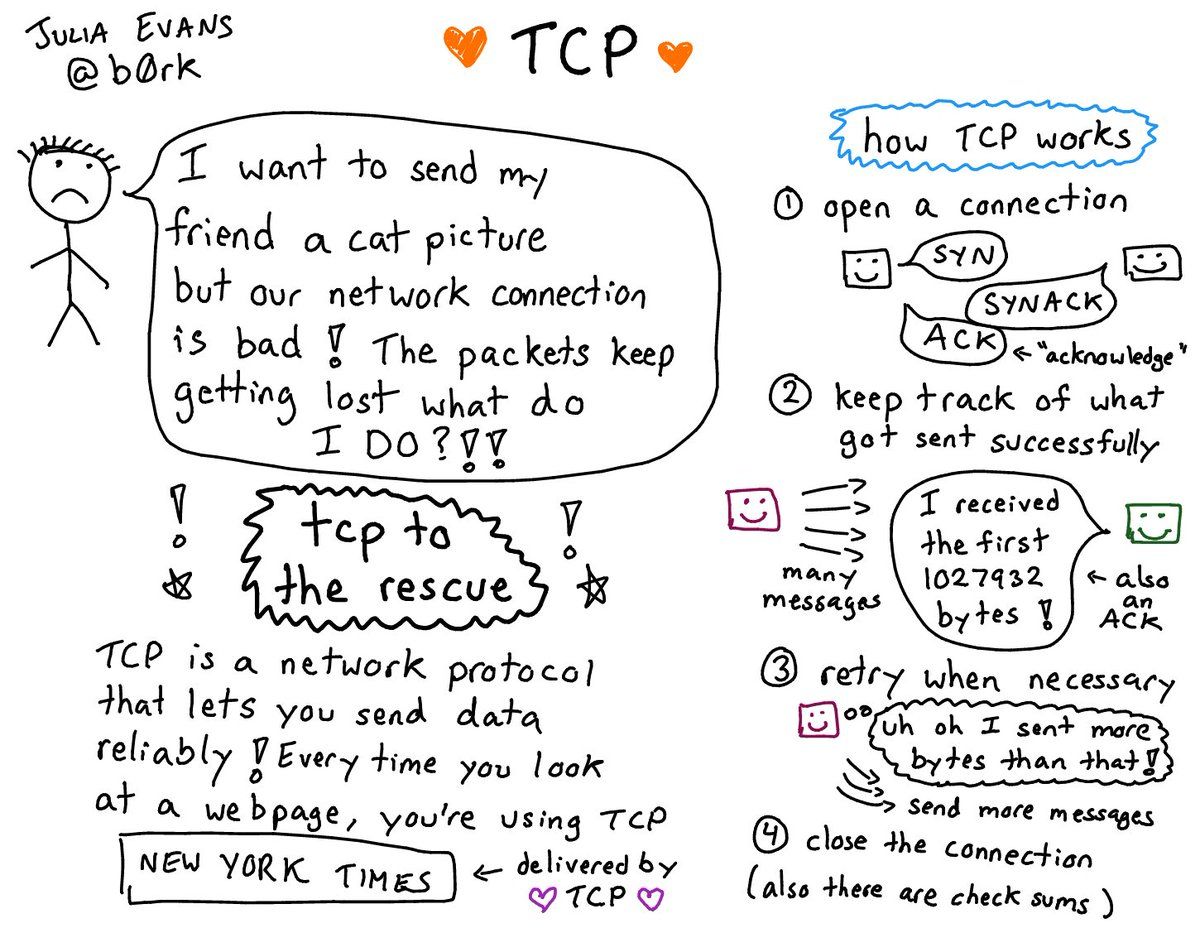 JULIA EVANS
@b0rk
TCP
I want to send my
friend a cat picture
but our network connection
is bad! The packets keep
getting lost what do
I DO?!!
! !
tcp to
the rescue
TCP is a network protocol
that lets you send data
reliably! Every time you look
at a webpage, you're using TCP
NEW YORK TIMES
← delivered by
♡ TCP ♡
how TCP works
① open a connection
SYN
SYNACK
ACK
← "acknowledge"
② keep track of what
got sent successfully
many
messages
I received
the first
1027932
bytes!
← also
an
ACK
③ retry when necessary
uh oh I sent more
bytes than that!
send more messages
④ close the connection
(also there are check sums)